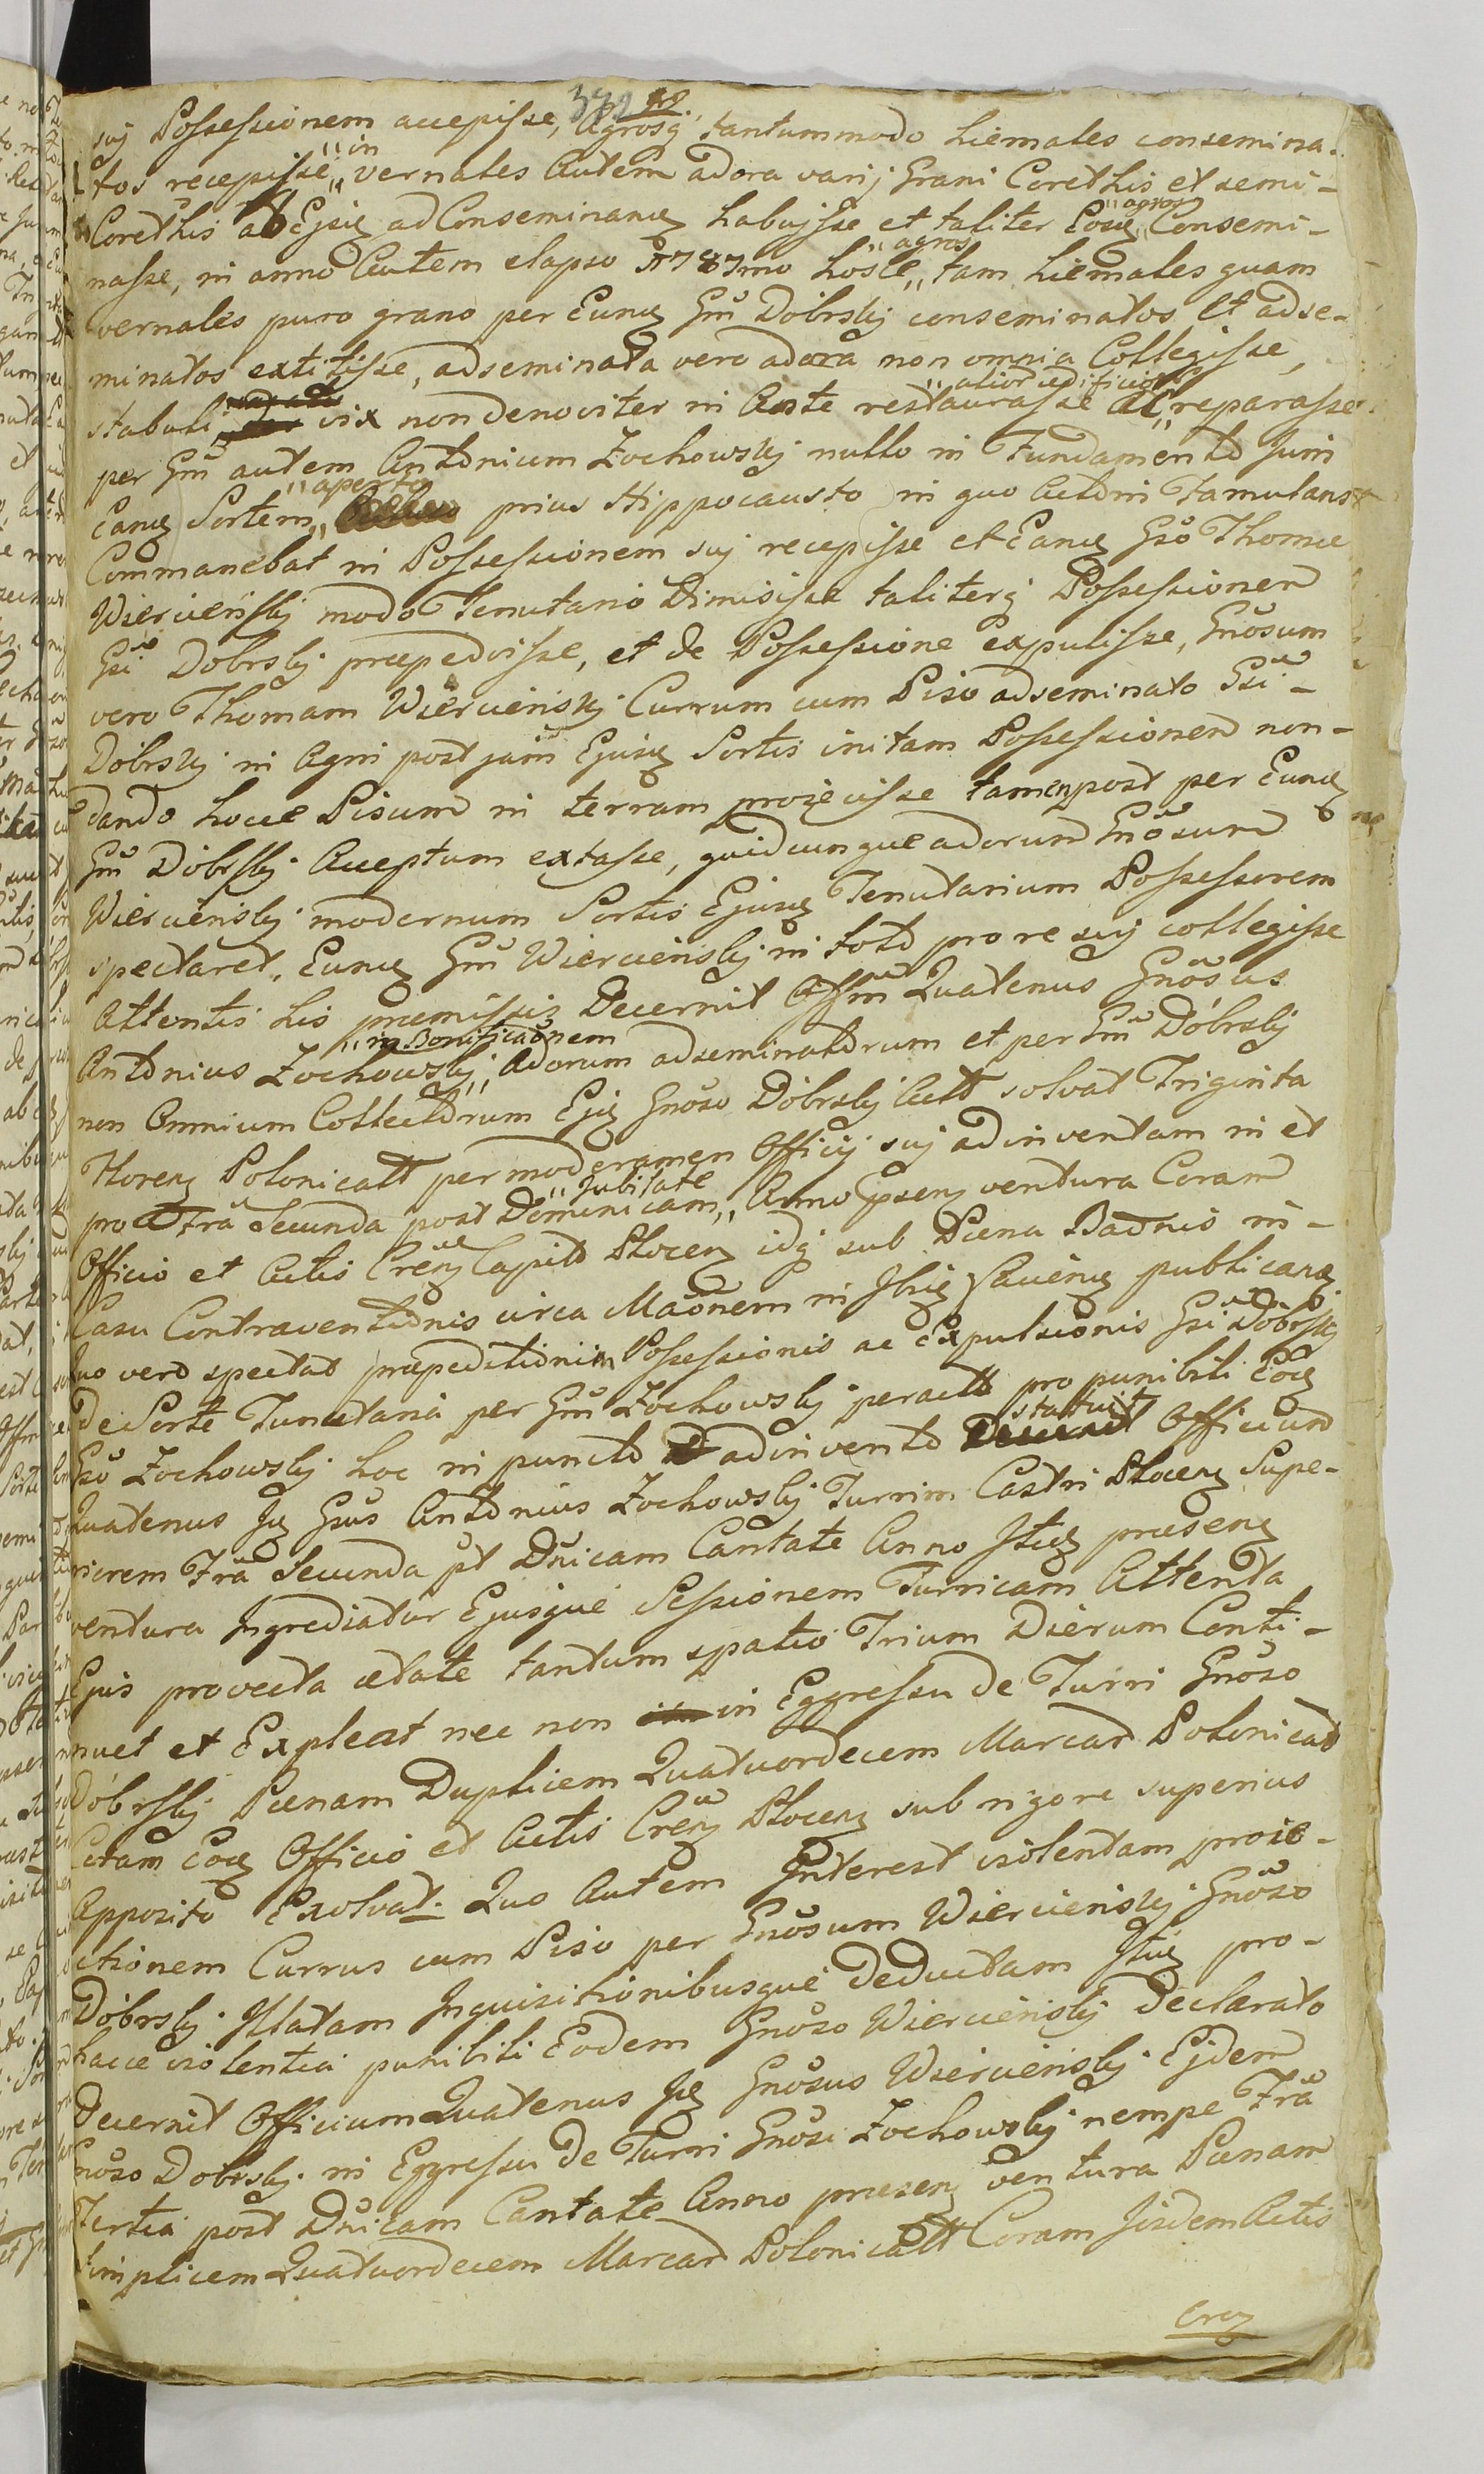 399
suj Possessionem accepisse, Agrosq̃ tantummodo hiemales consemina-
tos recepisse „ in vernales Autem adora varij Grani Corethis et semi-
Corethis ab Ejsdē ad Conseminanđ habuisse et taliter Eosđ „ agros Consemi-
nasse, in anno Autem elapso 1787mo hosce „ agros tam hiemales quam
vernales puro grano per Eunđ Gñ Dobrskj conseminatos et adse-
minatos extitisse, adseminata vero adora non omnia Collegisse,
stabuli vix non denoviter in Ante restaurasse ac „ alior ædificior reparasse
per Gñ autem Antonium Zochowskj nullo in Fundamento Juris
Eanđ Sortem „ aperto prius Hippocausto in quo Actoris Famulans
Commanebat in Possessionem suj recepisse et Eanđ Gso Thomæ
Wierciéński modo Tenutario Dimisisse taliterq̃ Possessionem
Gsi Dobrskj præpedivisse, et de Possessione expulisse, Gnosum
vero Thomam Wierciéński Currum cum Piso adseminato Gsi
Dobrskj in Agri post jam Ejusđ Sortis initam Possessionem non-
dando hocce Pisum in terram projecisse tamen post per Eunđ
Gñ Dobrskj Acceptum extasse, quidcunque adorum Gnosum
Wierciéński modernum Sortis Ejusđ Tenutarium Possessorem
spectaret, Eunđ Gñ Wierciéński in toto pro re suj collegisse
Attentis his præmissis Decernit Offm Quatenus Gnosus
Antonius Zochowskj „ in Bonificaõnem Adorum adseminatorum et per Gñ Dóbrskj
non Omnium Collectorum Ejđ Gnoso Dóbrskj Actt solvat Triginta
Floren Polonicatt per moderamen Officij suj adinventam in et
pro Frã Secunda post Dominicam „ Jubilate Anno Præsen ventura Coram
Officio et Actis Cren Capitt Plocen idq̃ sub Pœna Baõnis in
Casu Contraventionis circa Maõnem in Jhiđ Gaviend publicand
Quo vero spectat præpeditionem Possessionis ac Expulsionis Gsi Dobrskj
De Sorte Tenutaria per Gñ Zochowskj peractt pro punibili Eođ
Gso Zochowskj hoc in puncto adinvento statuit Officium
Quatenus Jđ Gsus Antonius Zochowskj Turrim Castri Plocen Supe-
riorem Frã Secunda pt Dñicam Cantate Anno Itiđ præsen
ventura Ingrediatur Ejusque Sessionem Turricam Attenta
Ejus provecta ætate tantum spatio Trium Dierum Conti-
nuet et Expleat nec non in Eggressu de Turri Gnoso
Dóbrskj Pœnam Duplicem Quatuordecem Marcar Polonicar
Coram Eođ Officio et Actis Cren Plocen sub rigore superius
Apposito Exolvat. Quo Autem Interest violentam proie-
ctionem Currus cum Piso per Gnosum Wierciéński Gnoso
Dóbrskj Illatam Inquisitionibusque Deductam Itiđ pro-
hacce violentia punibili Eodem Gnoso Wierciéński Declarato
Decernit Officium Quatenus Jđ Gnosus Wierciéński Ejdem
Gnoso Dobrskj in Eggressu de Turri Gnosi Zochowskj nempe Frã
Tertia post Dñicam Cantate Anno præsen ventura Pœnam
simplicem Quatuordecem Marcar Polonicatt Coram Jisdem Actis
Cren